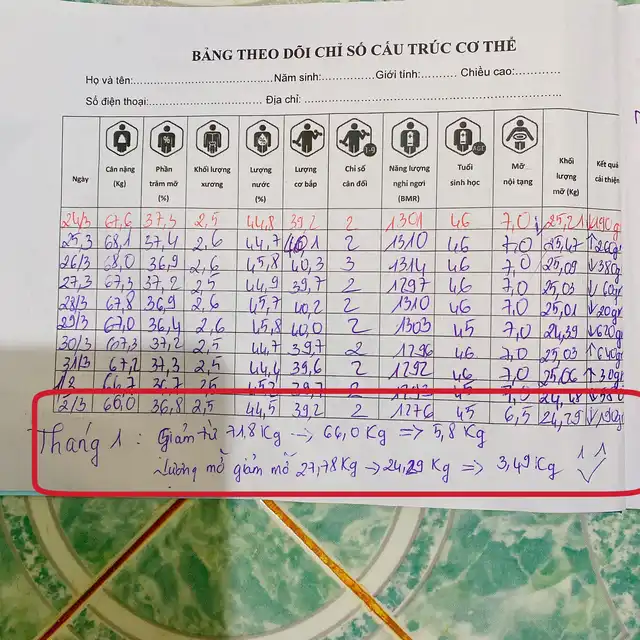 BẢNG THEO DÕI CHỈ SỐ CẤU TRÚC CƠ THỂ
Họ và tên:.......................................Năm sinh:...............Giới tính:.......... Chiều cao:............
Số điện thoại:................................ Địa chỉ: .......................................................................
Ngày Cân nặng (Kg) Phần trăm mỡ (%) Khối lượng xương Lượng nước (%) Lượng cơ bắp Chỉ số cân đối Năng lượng nghỉ ngơi (BMR) Tuổi sinh học Mỡ nội tạng Khối lượng mỡ (Kg) Kết quả cải thiện
24/3 67,6 37,3 2,5 44,8 39,2 2 1301 46 7,0 25,21 ↓190g
25,3 68,1 37,4 2,6 44,7 40,1 2 1310 46 7,0 25,47 ↑260g
26/3 68,0 36,9 2,6 45,8 40,3 3 1314 46 7,0 25,09 ↓380g
27,3 67,3 37,2 2,5 44,9 39,7 2 1297 46 7,0 25,03 ↓60g
28/3 67,8 36,9 2,6 45,7 40,2 2 1310 46 7,0 25,01 ↓20gr
29/3 67,0 36,4 2,6 45,8 40,0 2 1303 45 7,0 24,39 ↓620g
30/3 67,3 37,2 2,5 44,7 39,7 2 1296 46 7,0 25,03 ↑640g
31/3 67,2 37,3 2,5 44,4 39,6 2 1292 46 7,0 25,06 ↑30g
66,7 36,7 2,5 39,7 2 7,0 24,48
2/3 66,0 36,8 2,5 44,5 39,2 2 1276 45 6,5 24,29 ↓190g
Tháng 1 : Giảm từ 71,8 Kg → 66,0 Kg => 5,8 Kg
Lượng mỡ giảm mỡ 27,78 Kg → 24,29 Kg => 3,49 Kg